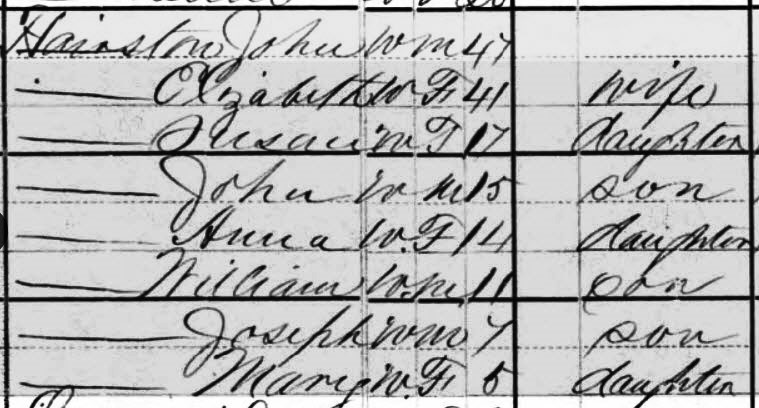 Hairston John W M 47
—— Elizabeth W F 41 wife
—— Susan W F 17 daughter
—— John W M 15 son
—— Anna W. F 14 daughter
—— William W. M 11 son
—— Joseph W M 7 son
—— Mary W. F 5 daughter